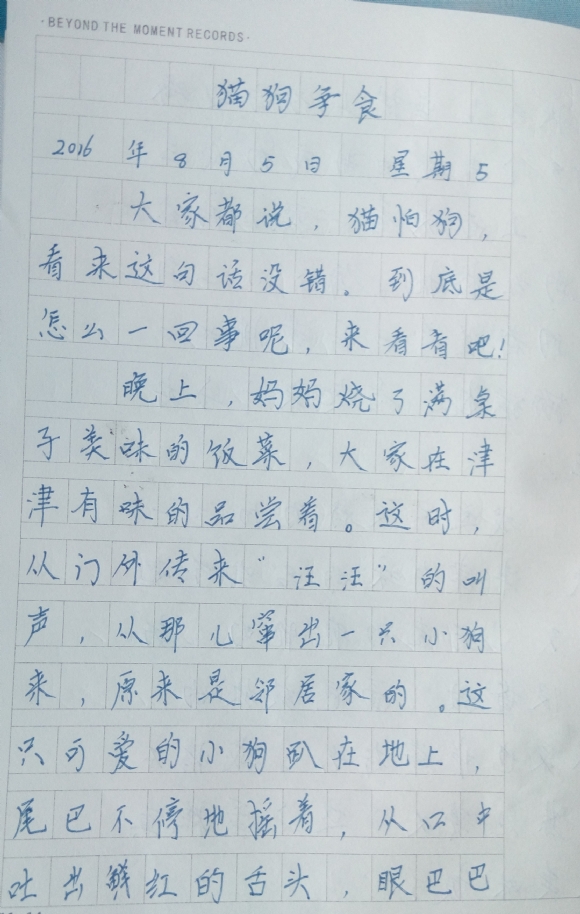 ·BEYOND THE MOMENT RECORDS·
猫狗争食
2016年8月5日 星期5
大家都说，猫怕狗，
看来这句话没错。到底是
怎么一回事呢，来看看吧！
晚上，妈妈烧了满桌
子美味的饭菜，大家在津
津有味的品尝着。这时，
从门外传来“汪汪”的叫
声，从那儿窜出一只小狗
来，原来是邻居家的。这
只可爱的小狗趴在地上，
尾巴不停地摇着，从口中
吐出鲜红的舌头，眼巴巴